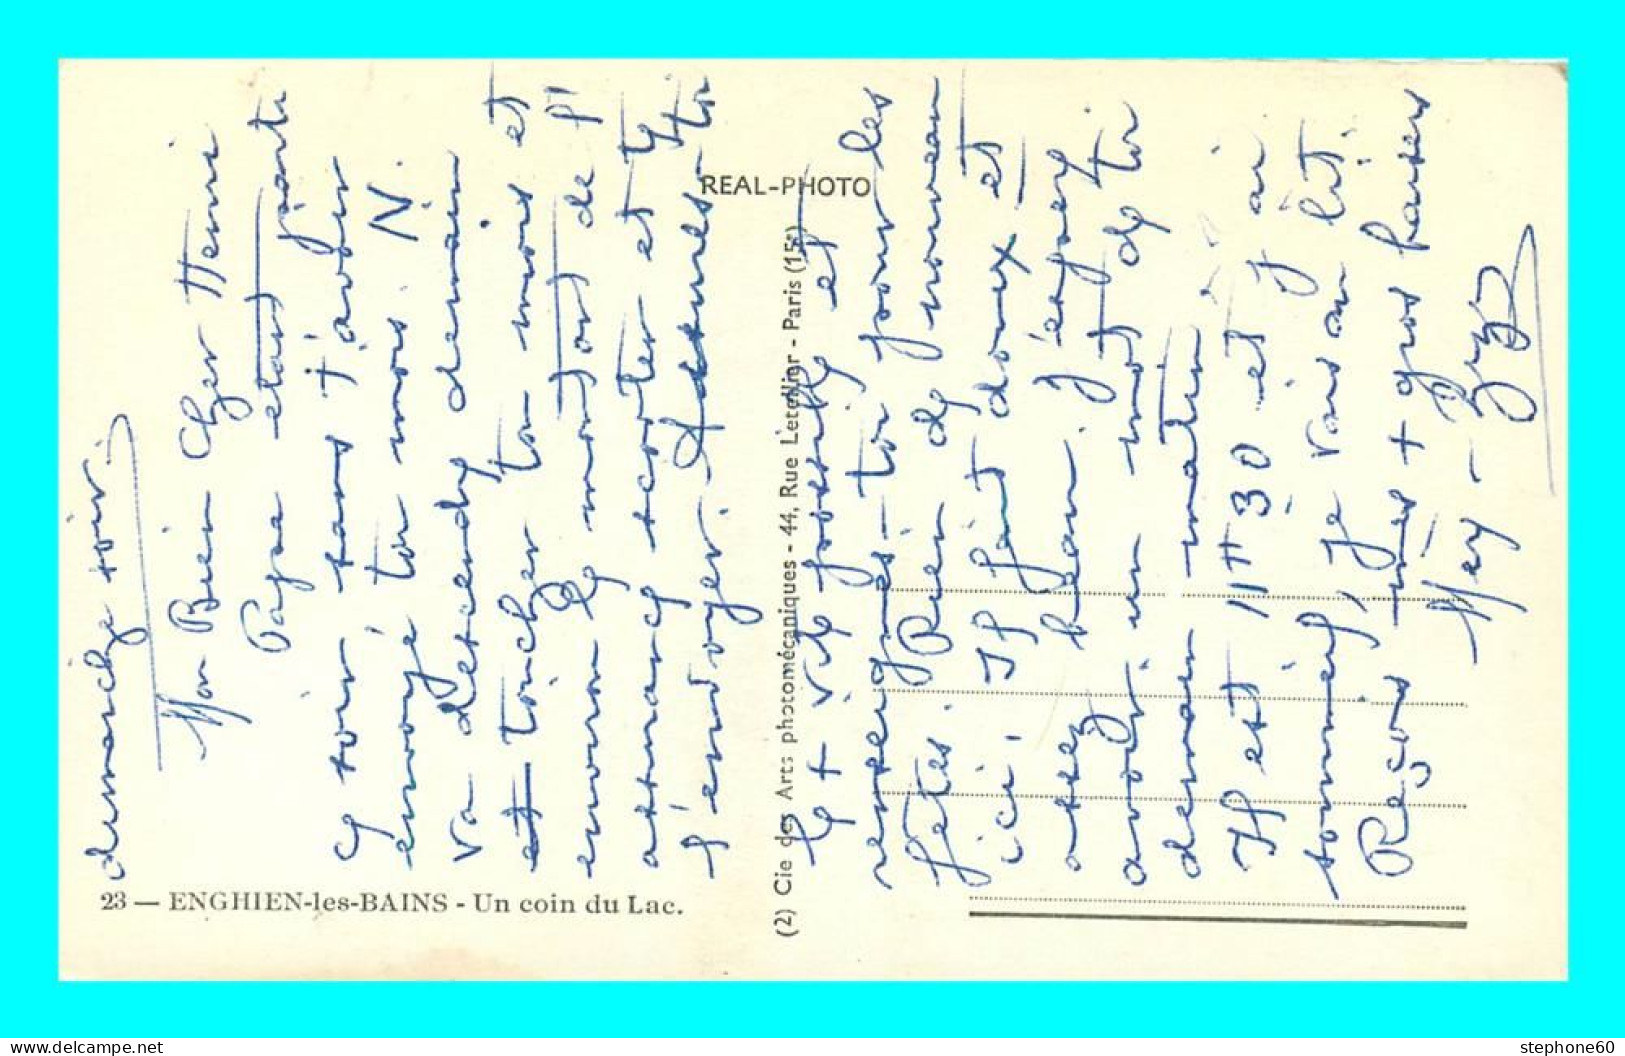 dimanche soir.
Mon Bien Cher Henri
Papa etant parti
ce soir sans t'avoir
envoyé ton mois. N.
va descendre demain
et toucher ton mois et
enverra le montant de
attends et
l'envoyer.
le + vite possible et
renseignes-toi pour les
fetes. Rien de nouveau
ici. Il fait doux et
assez beau. J'espere
avoir un mot de toi
demain matin.
Il est 11H 30 et j'ai
sommeil, je vais au lit.
Reçois mes + gros baisers
REAL-PHOTO
(2) Cie des Arts photomécaniques - 44, Rue Letellier - Paris (15e)
23 — ENGHIEN-les-BAINS - Un coin du Lac.
delcampe.net
stephone60